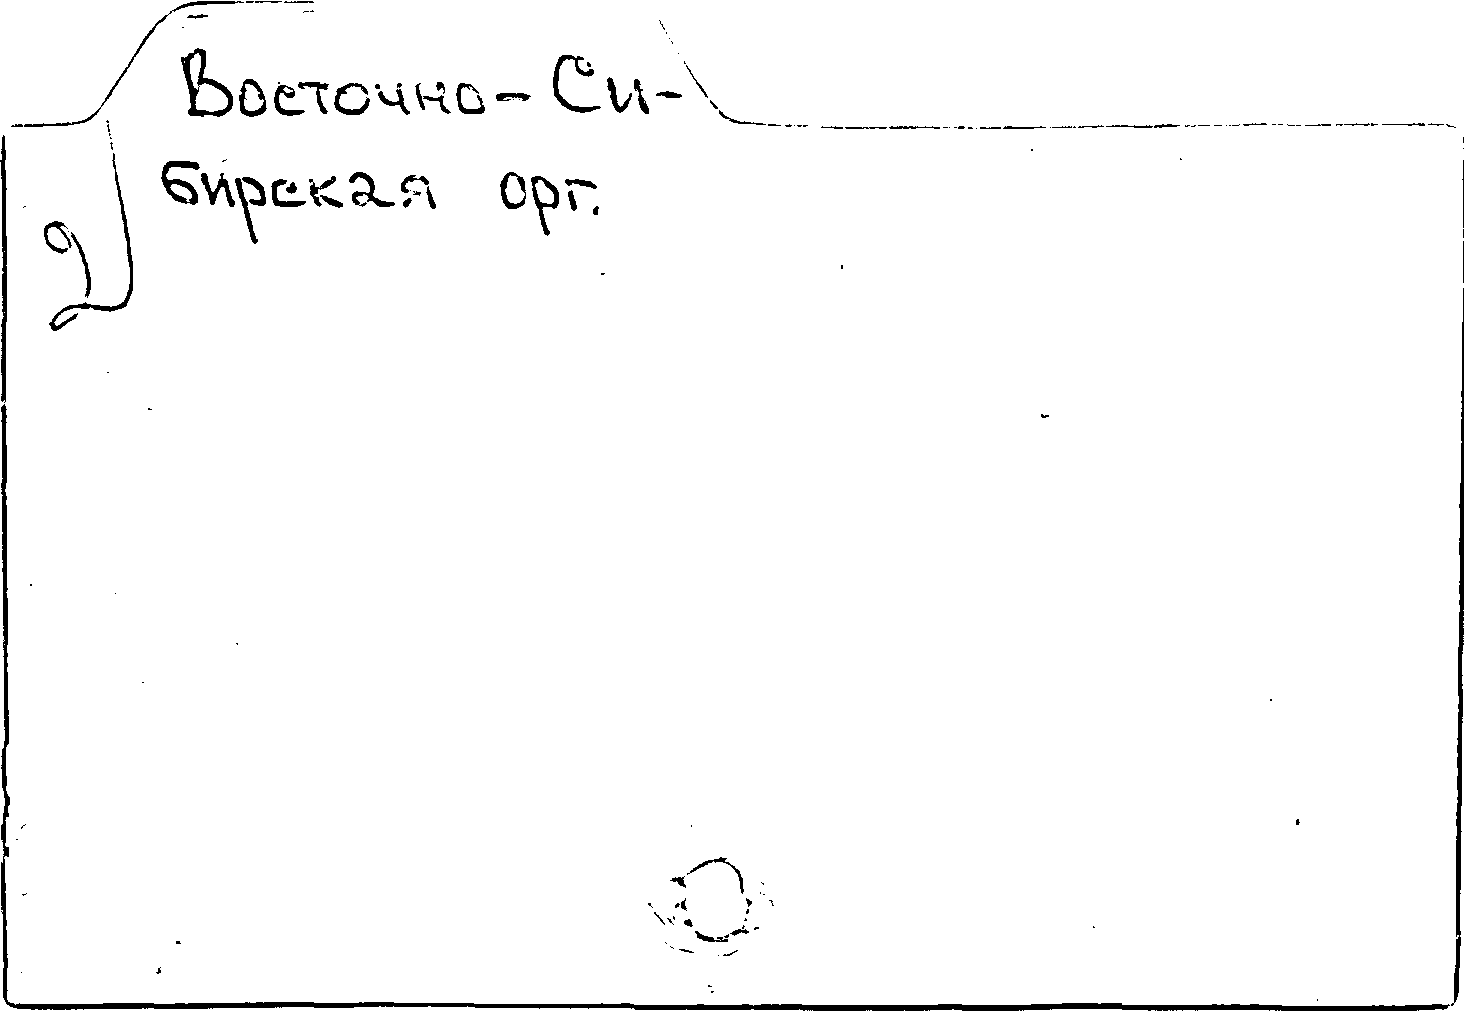 Восточно-Си-
бирская орг.
2